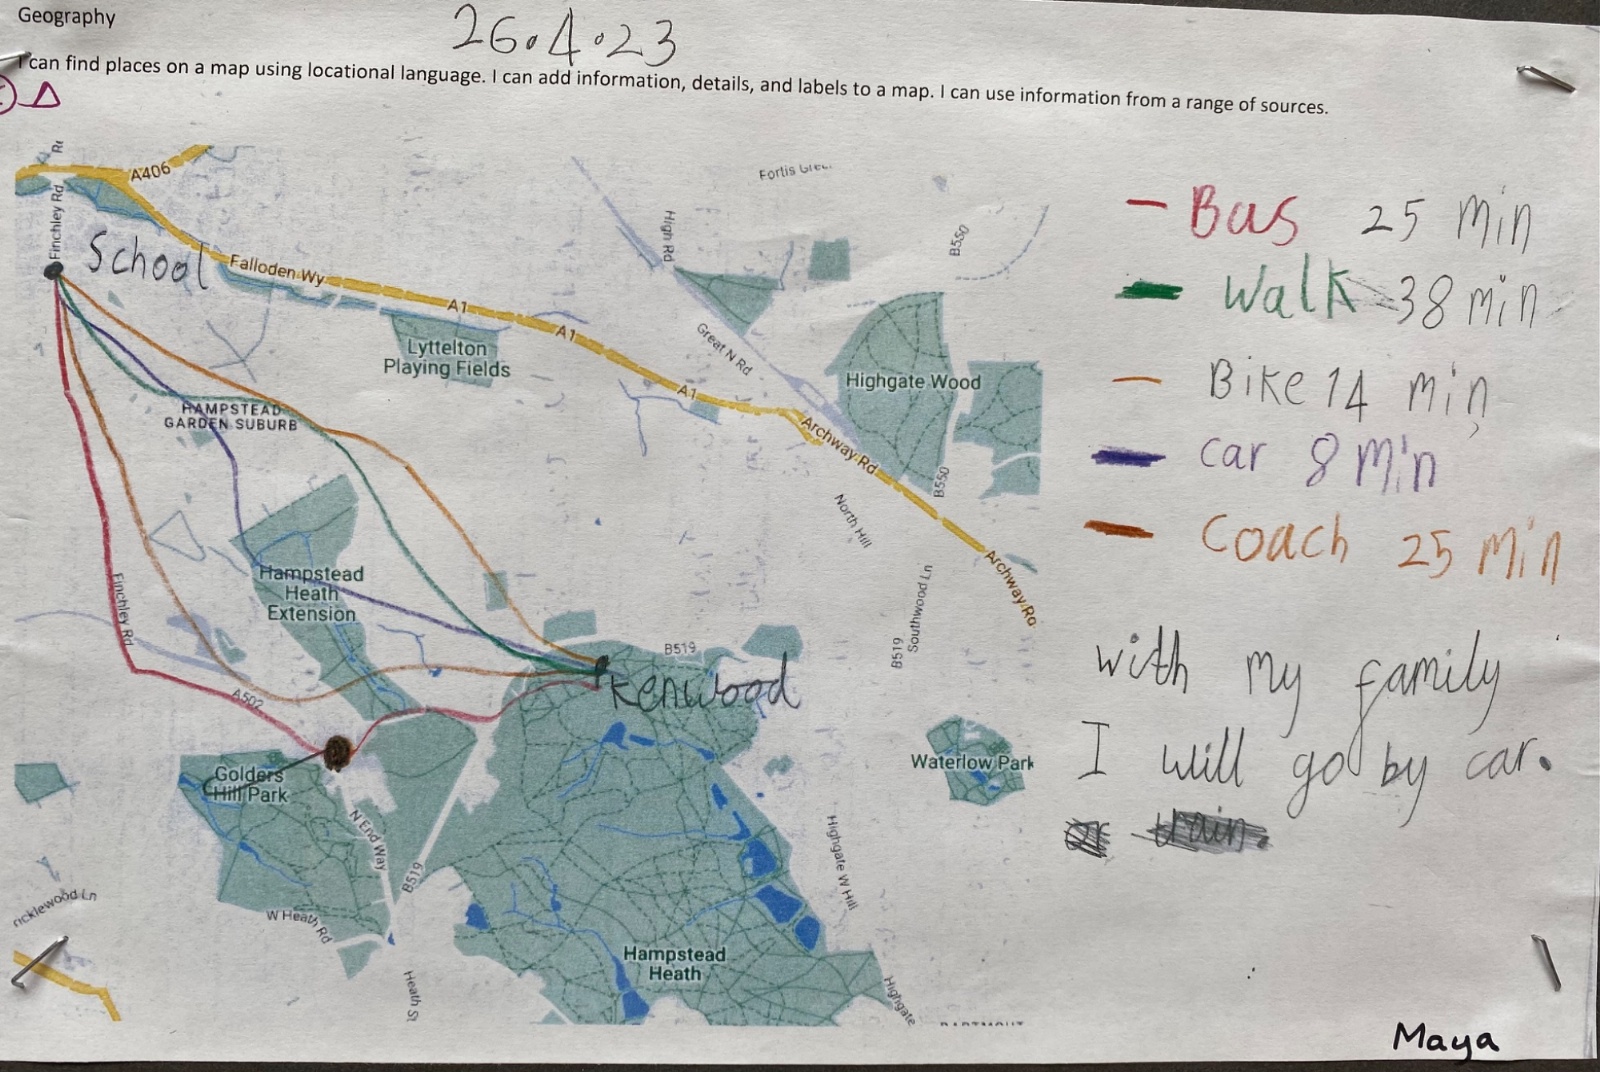 Geography
26.4.23
I can find places on a map using locational language. I can add information, details, and labels to a map. I can use information from a range of sources.
A406
Finchley Rd
School
Falloden Wy
A1
A1
A1
High Rd
Great N Rd
B550
Lyttelton
Playing Fields
Highgate Wood
HAMPSTEAD
GARDEN SUBURB
Archway Rd
B550
North Hill
Archway Rd
Hampstead
Heath
Extension
Finchley Rd
Southwood Ln
B519
B519
Kenwood
A502
Golders
Hill Park
Waterlow Park
N End Way
B519
W Heath Rd
Highgate W Hill
Hampstead
Heath
Heath St
Highgate
Bus 25 Min
Walk 38 min
Bike 14 min
car 8 Min
Coach 25 Min
with my family
I will go by car.
or train.
Maya